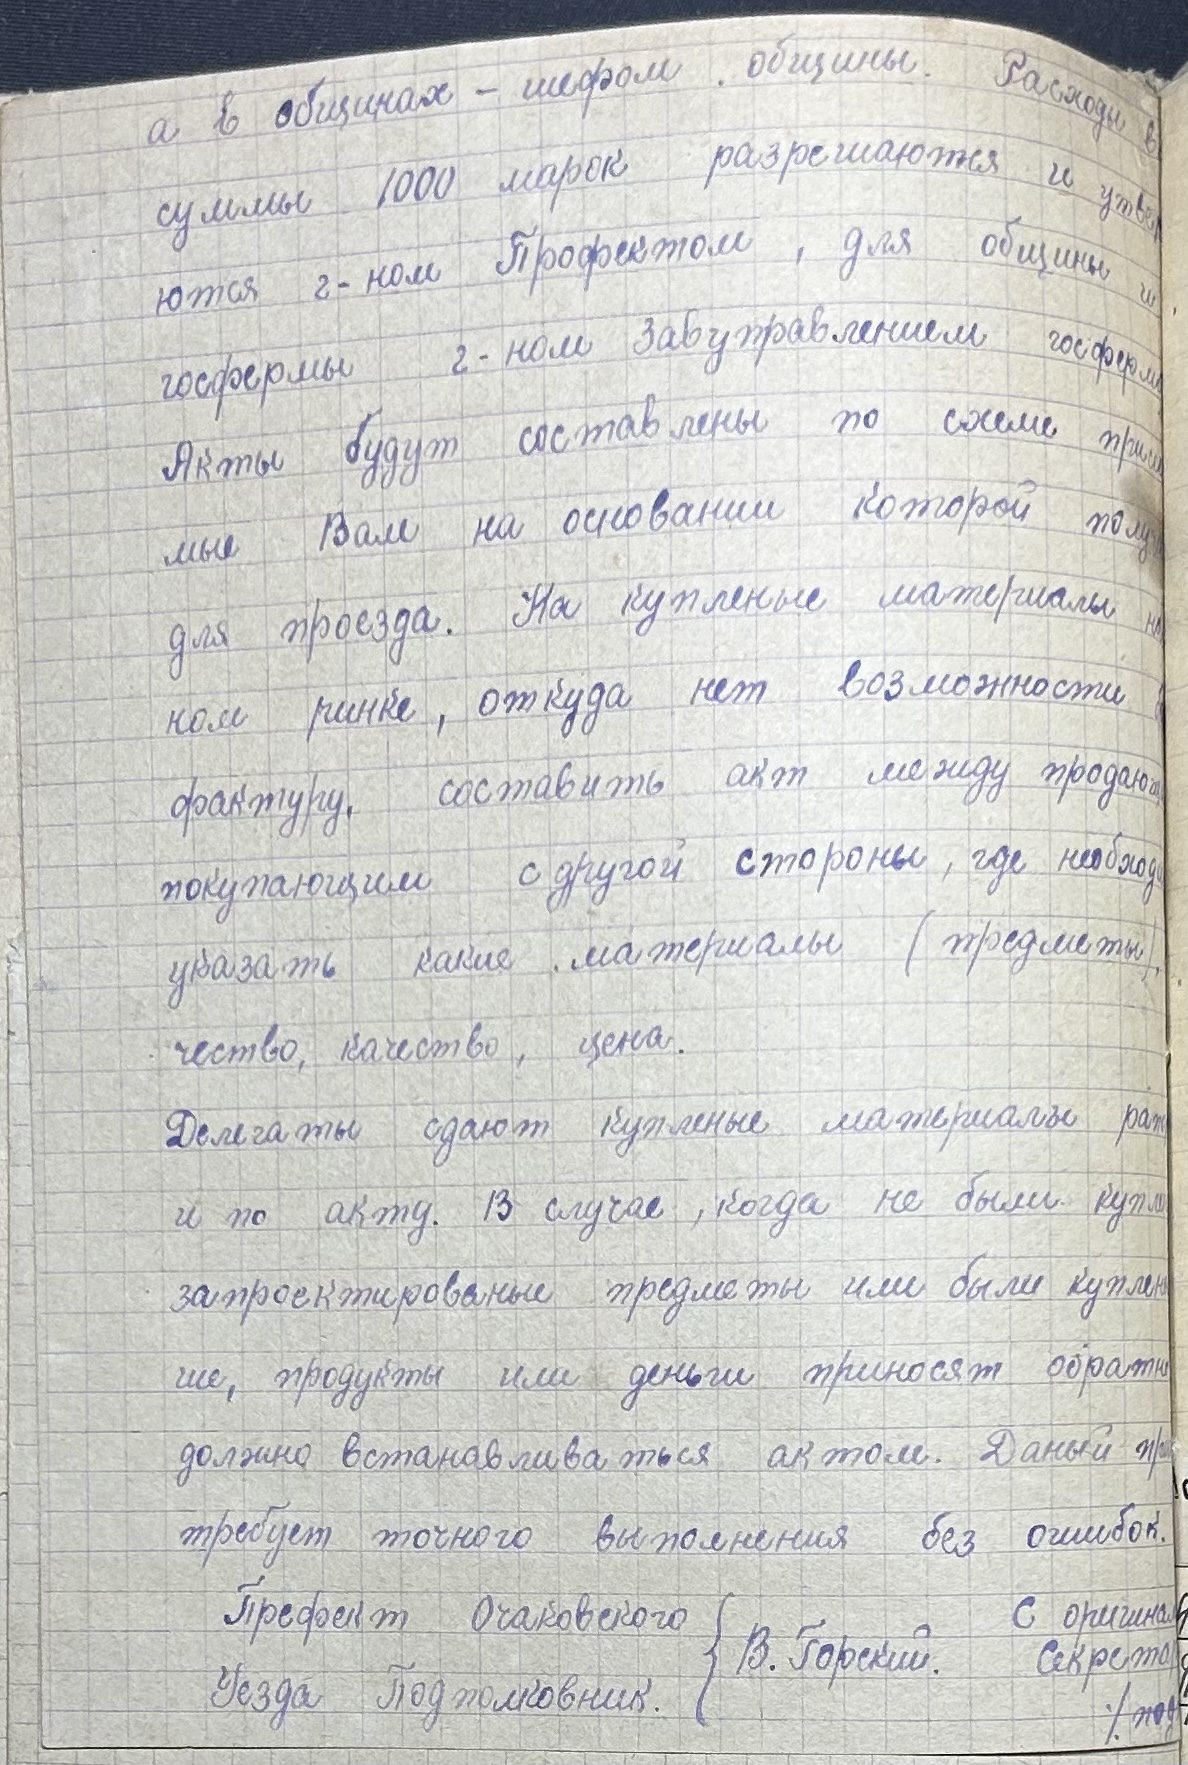 а в общинах – шефом общины. Расходы в
суммы 1000 марок разрешаются и утвер
ются г-ном Профектом, для общины и
госфермы г-ном Завуправлением госферм
Акты будут составлены по схеме присы
мые Вам на основании которой получ
для проезда. На купленые материалы на
ном ринке, откуда нет возможности
фактуру, составить акт между продаю
покупающим с другой стороны, где необходи
указать какие материалы (предметы),
чество, качество, цена.
Делегаты сдают купленые материалы
и по акту. В случае, когда не были купле
запроектированые предметы или были куплены
ше, продукты или деньги приносят обратно
должно встанавливаться актом. Даный при
требует точного выполнения без ошибок.
Префект Очаковского { В. Горский. С оригинал
Уезда Подполковник. Секретар
/. под